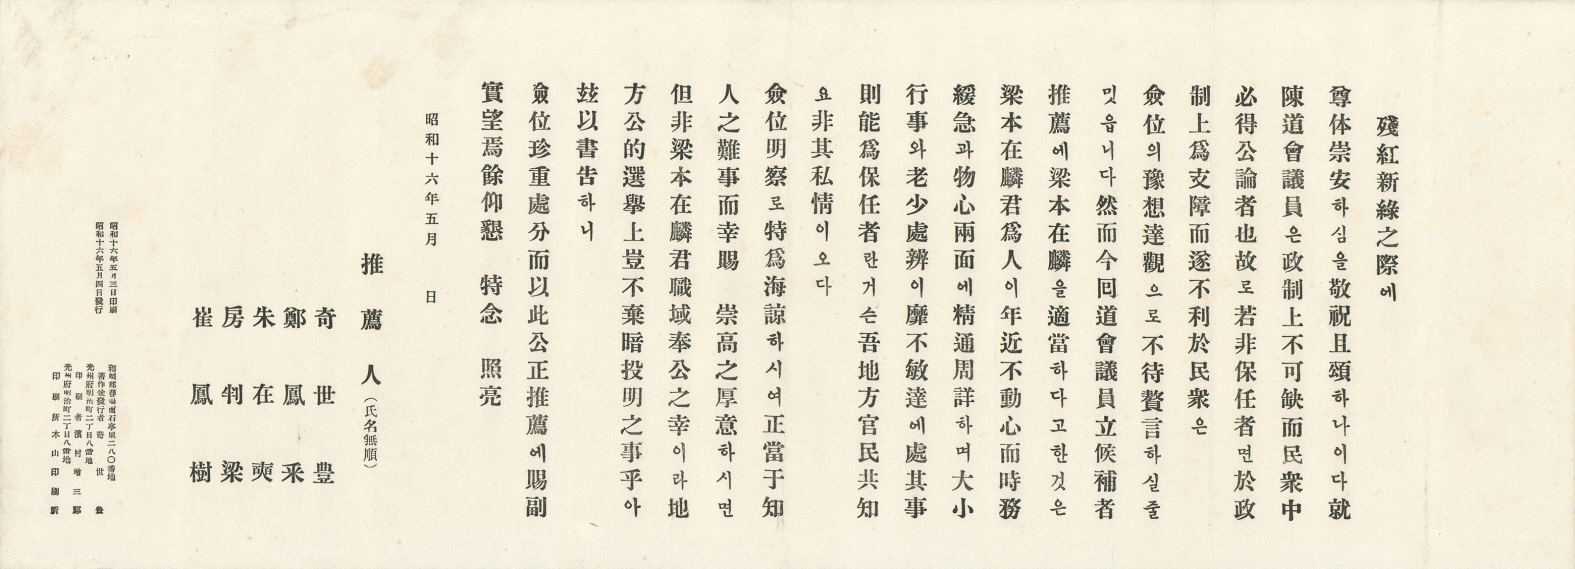 殘紅新綠之際에
尊体崇安하심을敬祝且頌하나이다就
陳道會議員은政制上不可缺而民衆中
必得公論者也故로若非保任者면於政
制上爲支障而遂不利於民衆은
僉位의豫想達觀으로不待贅言하실줄
밋읍니다然而今回道會議員立候補者
推薦에梁本在麟을適當하다고한것은
梁本在麟君爲人이年近不動心而時務
緩急과物心兩面에精通周詳하며大小
行事와老少處辨이靡不敏達에處其事
則能爲保任者란거슨吾地方官民共知
요非其私情이오다
僉位明察로特爲海諒하시여正當于知
人之難事而幸賜 崇高之厚意하시면
但非梁本在麟君職域奉公之幸이라地
方公的選擧上豈不棄暗投明之事乎아
玆以書告하니
僉位珍重處分而以此公正推薦에賜副
實望焉餘仰懇 特念 照亮
昭和十六年五月 日
推薦人(氏名無順)
奇世豊
鄭鳳采
朱在奭
房判梁
崔鳳樹
昭和十六年五月三日印刷
昭和十六年五月四日發行
和順郡春陽面石亭里二八〇番地
著作兼發行者 奇世豊
光州府明治町二丁目八番地
印刷者 濱村增三郎
光州府明治町二丁目八番地
印刷所 木山印刷所